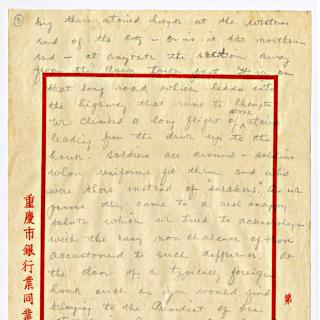 5
big three storied house at the western
end of the city - or is it the northern
end - at any rate the section away
from the down town part. It is on
that long road which leads into
the highway that runs to Chengtu
We climbed a long flight of stone stairs
leading from the drive up to the
house. Soldiers are around - soldiers
whose uniforms fit them and who
wear shoes instead of sneakers. As we
passed they came to a real snappy
salute which we tried to acknowledge
with the easy non chalance of those
accustomed to such deference. At
the door of a typically foreign
house such as you would find
belonging to the President of
重慶市銀行業同業
第